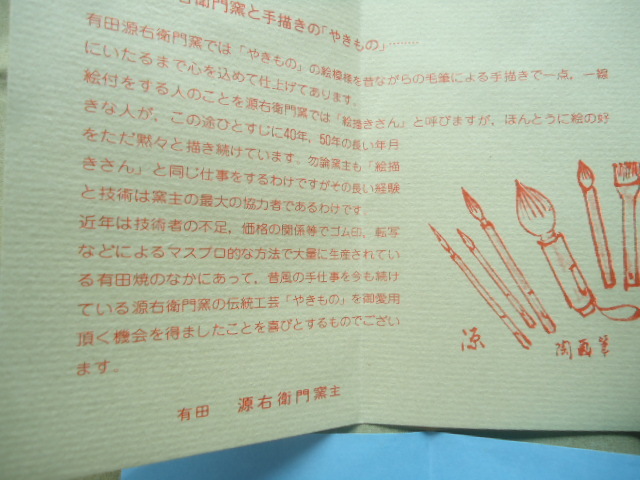 右衛門窯と手描きの「やきもの」………
有田源右衛門窯では「やきもの」の絵模様を昔ながらの毛筆による手描きで一点，一線
にいたるまで心を込めて仕上げてあります。
絵付をする人のことを源右衛門窯では「絵描きさん」と呼びますが，ほんとうに絵の好
きな人が，この途ひとすじに40年，50年の長い年月
をただ黙々と描き続けています。勿論窯主も「絵描
きさん」と同じ仕事をするわけですがその長い経験
と技術は窯主の最大の協力者であるわけです。
近年は技術者の不足，価格の関係等でゴム印，転写
などによるマスプロ的な方法で大量に生産されてい
る有田焼のなかにあって，昔風の手仕事を今も続け
ている源右衛門窯の伝統工芸「やきもの」を御愛用
頂く機会を得ましたことを喜びとするものでござい
ます。
有田　源右衛門窯主
源　陶画筆